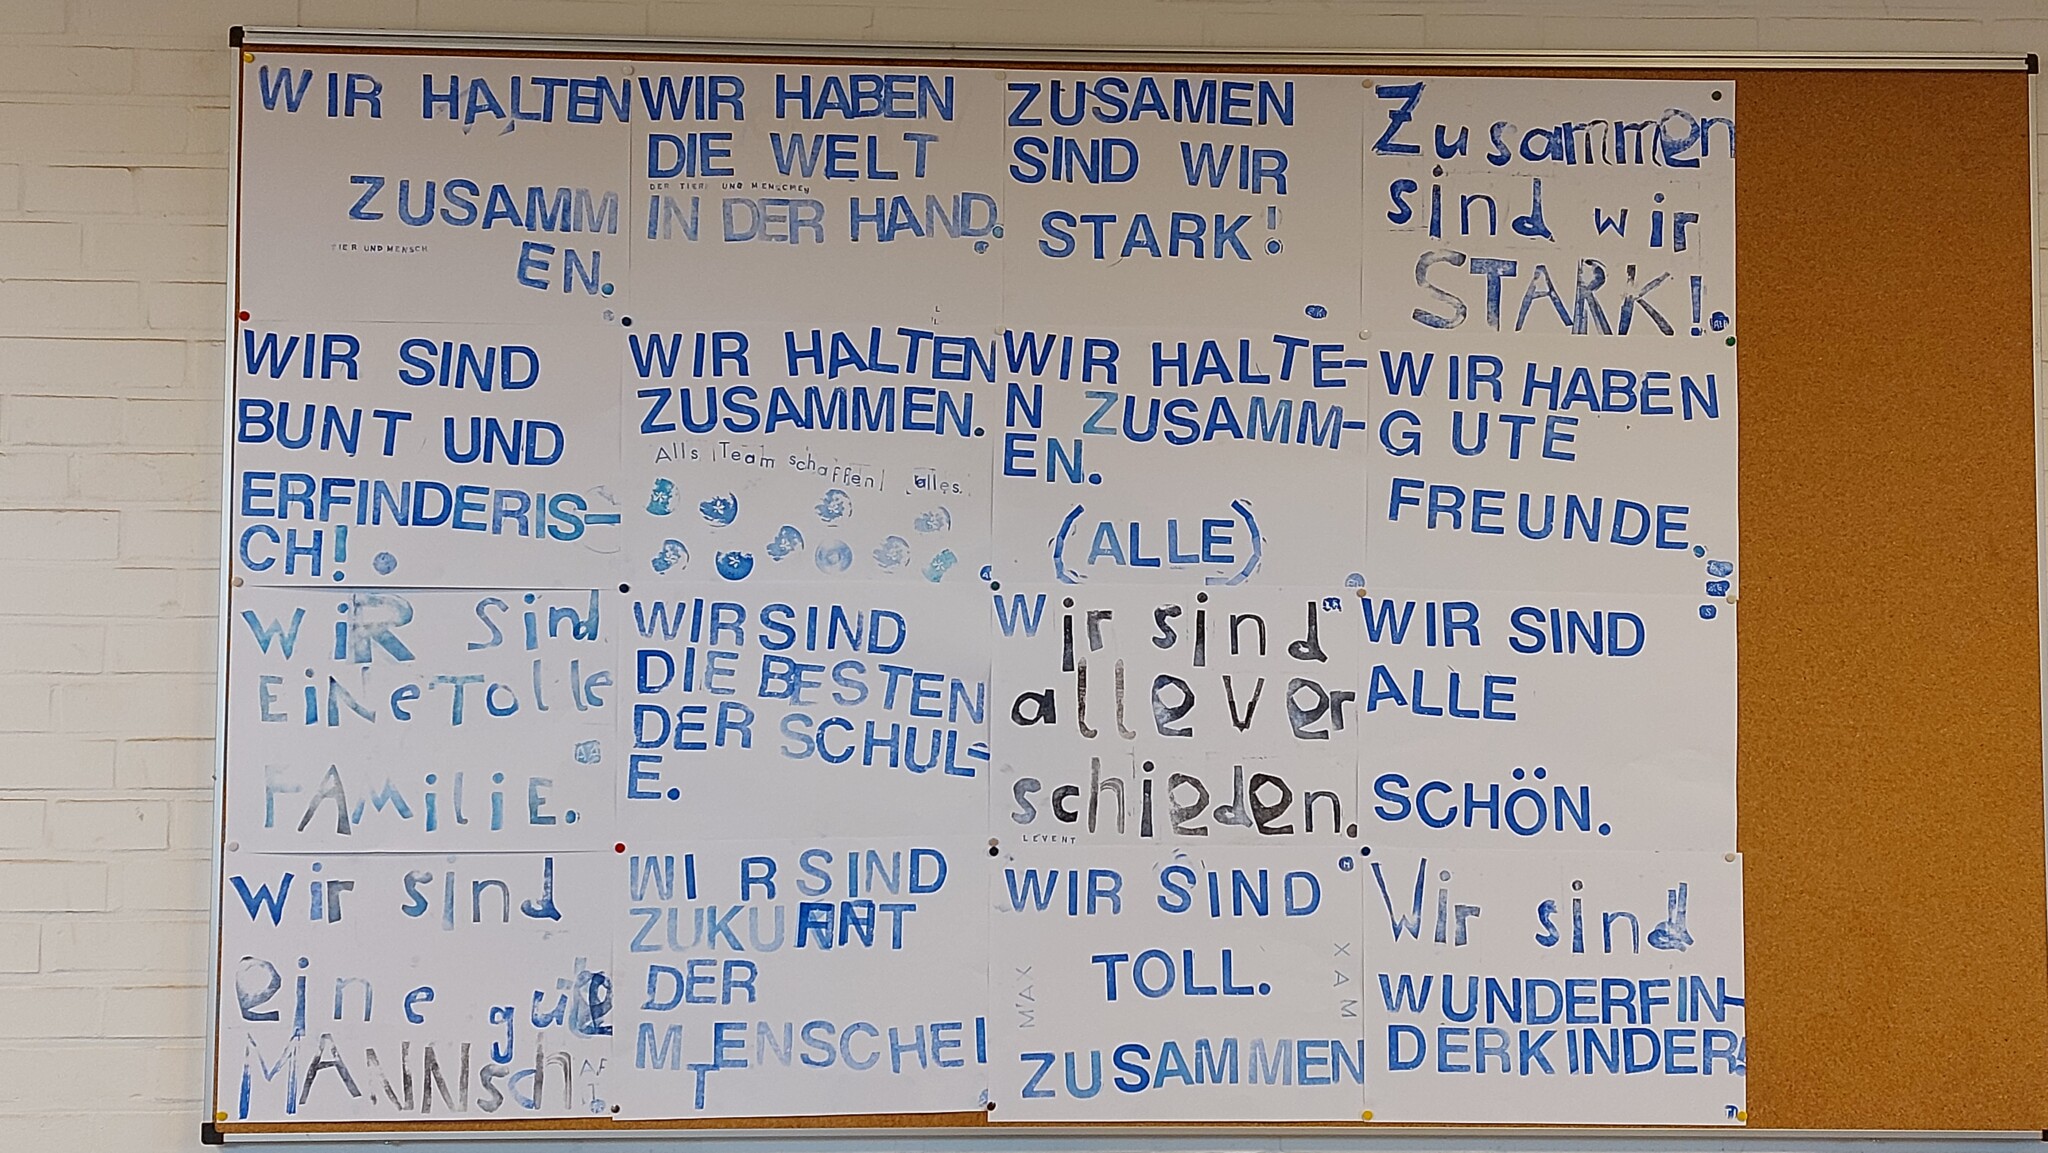 WIR HALTEN
ZUSAMM
TIER UND MENSCH
EN.
WIR HABEN
DIE WELT
DER TIERE UND MENSCHEN
IN DER HAND.
ZUSAMEN
SIND WIR
STARK!
Zusammen
sind wir
STARK!
WIR SIND
BUNT UND
ERFINDERIS-
CH!
WIR HALTEN
ZUSAMMEN.
Alls Team schaffen alles.
WIR HALTE-
N ZUSAMM-
EN.
(ALLE)
WIR HABEN
GUTE
FREUNDE.
WiR Sind
EiNe Tolle
FAMiliE.
WIR SIND
DIE BESTEN
DER SCHUL-
E.
Wir sind
alle ver
schieden.
LEVENT
WIR SIND
ALLE
SCHÖN.
wir sind
eine gute
MANNsch
WIR SIND
DER
MENSCHEI
T
WIR SIND
TOLL.
MAX
MAX
ZUSAMMEN
Wir sind
WUNDERFIN-
DERKINDER!